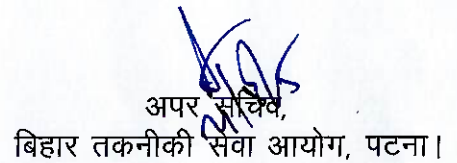 अपर सचिव,
बिहार तकनीकी सेवा आयोग, पटना।